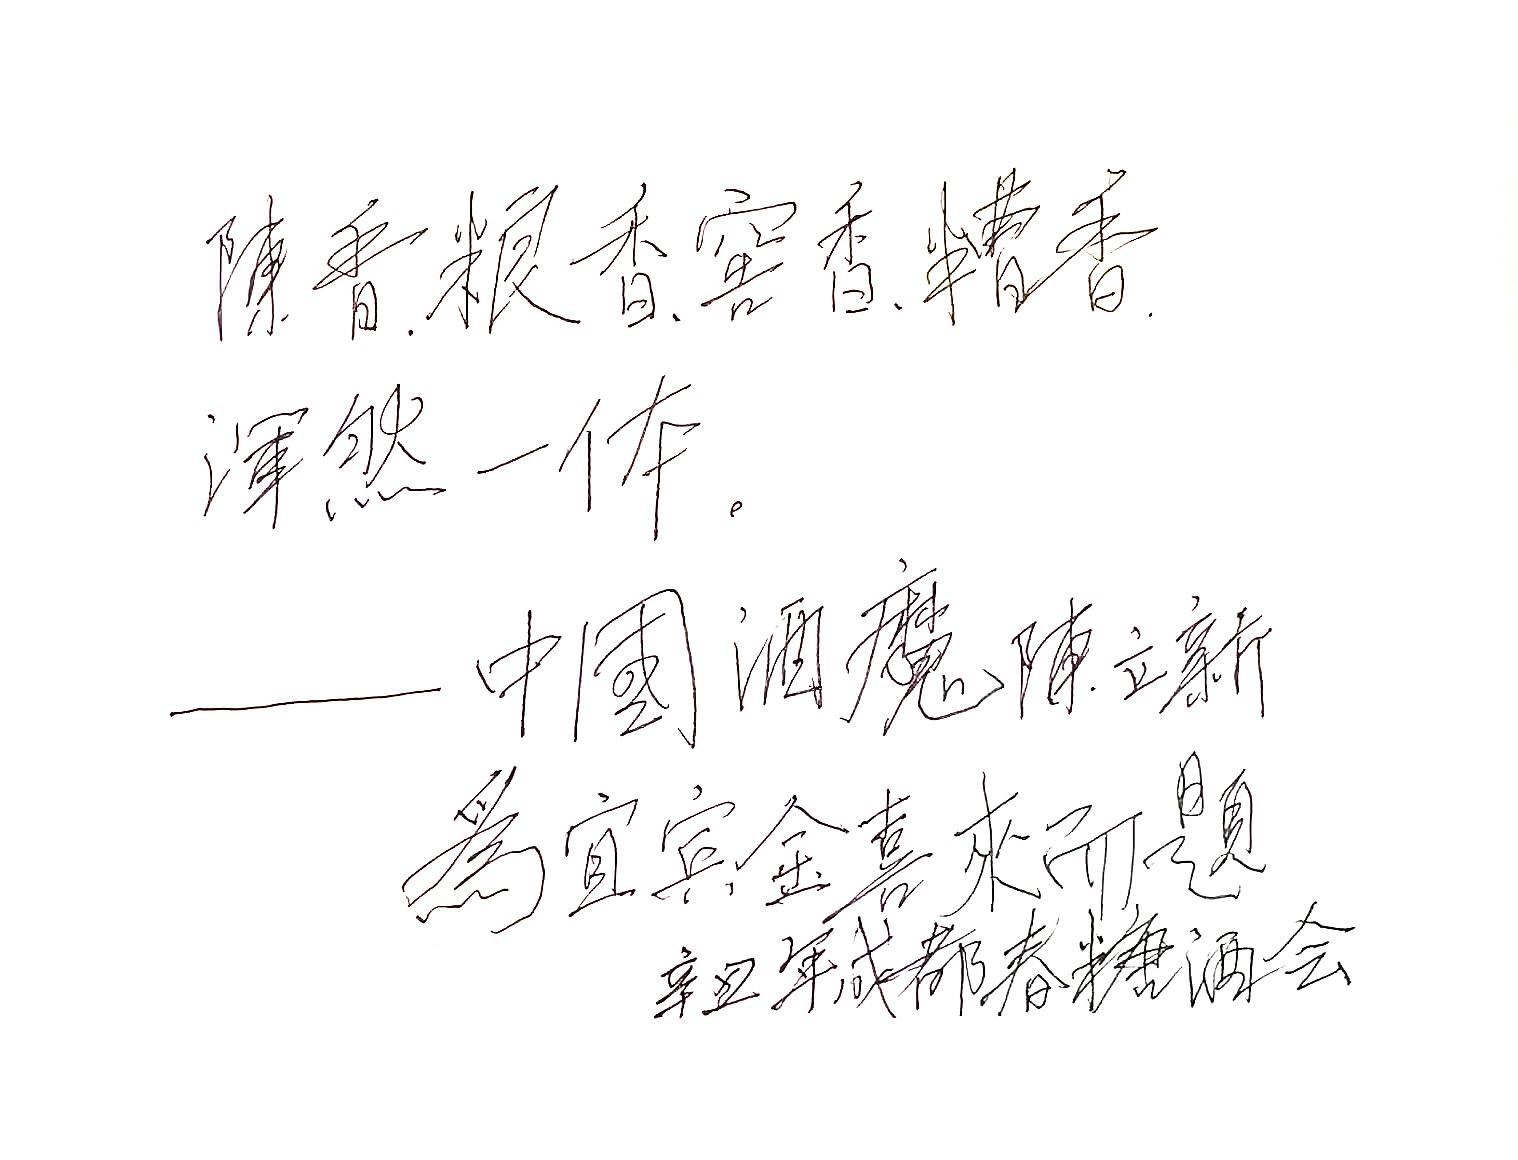 陳香.粮香、窖香、糟香.
渾然一体。
——中國酒魔陳立新
為宜宾金喜來而题
辛丑年成都春糖酒会